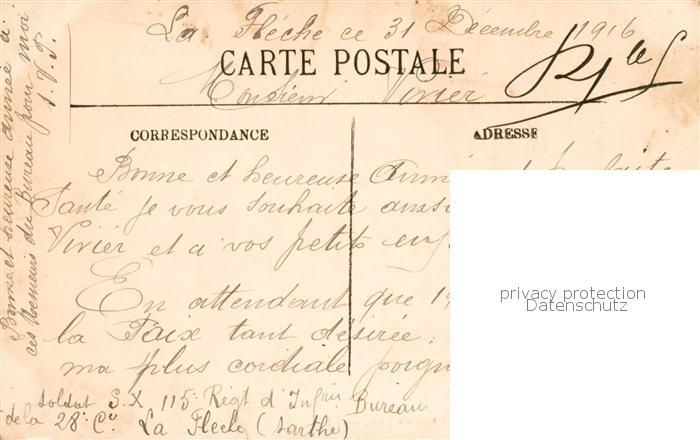 La Flèche ce 31 Décembre 1916
CARTE POSTALE
Monsieur Vivier
CORRESPONDANCE
ADRESSE
Bonne et heureuse
Santé je vous souhaite
Vivier et a vos petits
En attendant que
la Paix tant désirée,
ma plus cordiale
soldat S.X 115e Regt d'Infrie Bureau
de la 28e Cie La Fleche (Sarthe)
Bonne et heureuse année à
ces Messieurs du Bureau pour moi
S.V.P.
privacy protection
Datenschutz